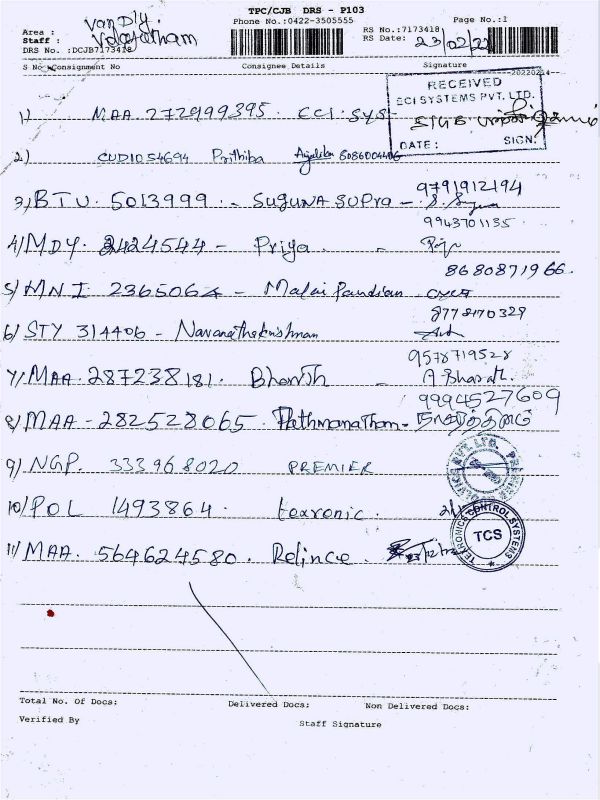 TPC/CJB DRS - P103
Phone No.:0422-3505555
Page No.:1
Area : Van Dly.
Staff :
DRS No. :DCJB7173418
RS No.:7173418
RS Date: 23/02/22
S No Consignment No Consignee Details Signature
20220214
RECEIVED
ECI SYSTEMS PVT. LTD.
DATE: SIGN.
1) MAA. 272999395 - ECI. Sys-
2) CUD1054694 Prithiba 8086004406
9791912194
3) BTU. 5013999 - SUGUNA SUPra -
9943701135
4) MDY. 2424544 - Priya -
8680871966.
5) MNI 2365064 - Malai Pandian
8778170329
6) STY 314406 - Navaneethakrishnan
9578719528
7) MAA. 287238181. Bharath - A Bharath.
9994527609
8) MAA - 282528065. Pathmanatham-
9) NGP. 333968020 PREMIER
10) POL 1493864. texronic.
TEXRONIC CONTROL SYSTEMS
TCS
11) MAA. 564624580. Relince.
Total No. Of Docs: Delivered Docs: Non Delivered Docs:
Verified By Staff Signature